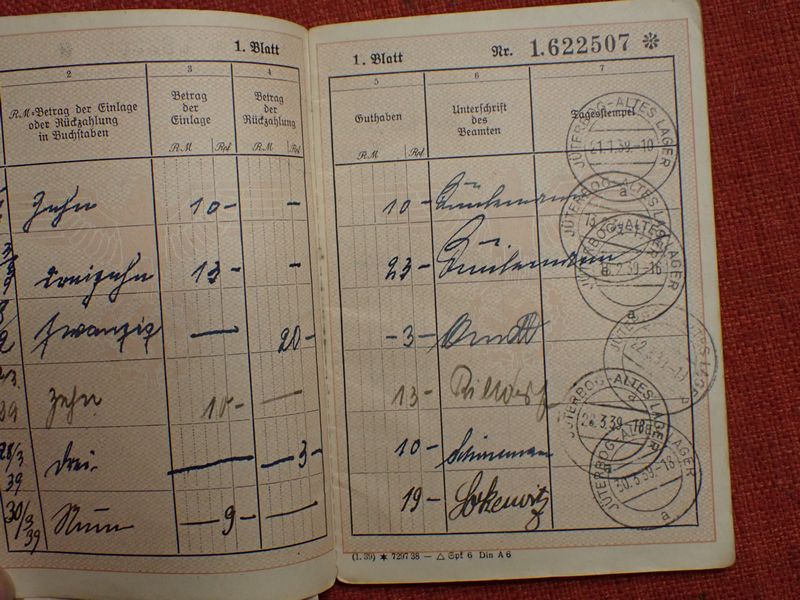 1. Blatt
2
3
4
R.M.-Betrag der Einlage
oder Rückzahlung
in Buchstaben
Betrag
der
Einlage
Betrag
der
Rückzahlung
R.M
Rpf
R.M
Rpf
Zehn 10 – –
dreizehn 13 – –
Zwanzig — 20 –
zehn 10 – —
28/3
39
drei. — 3 –
30/3
39
Neun — 9 – —
1. Blatt
Nr. 1.622507 ✻
5
6
7
Guthaben
Unterschrift
des
Beamten
Tagesstempel
R.M
Rpf
10 –
23 –
– 3 –
13 –
10 –
19 –
JÜTERBOG-ALTES LAGER
21.1.39.-10
a
JÜTERBOG-ALTES LAGER
a
JÜTERBOG-ALTES LAGER
.2.39.-16
a
JÜTERBOG-ALTES LAGER
22.3.39.
a
JÜTERBOG-ALTES LAGER
28.3.39.-18
a
JÜTERBOG-ALTES LAGER
30.3.39.-18
a
(1. 39) ✶ 7297 38 — △ Spf 6 Din A 6